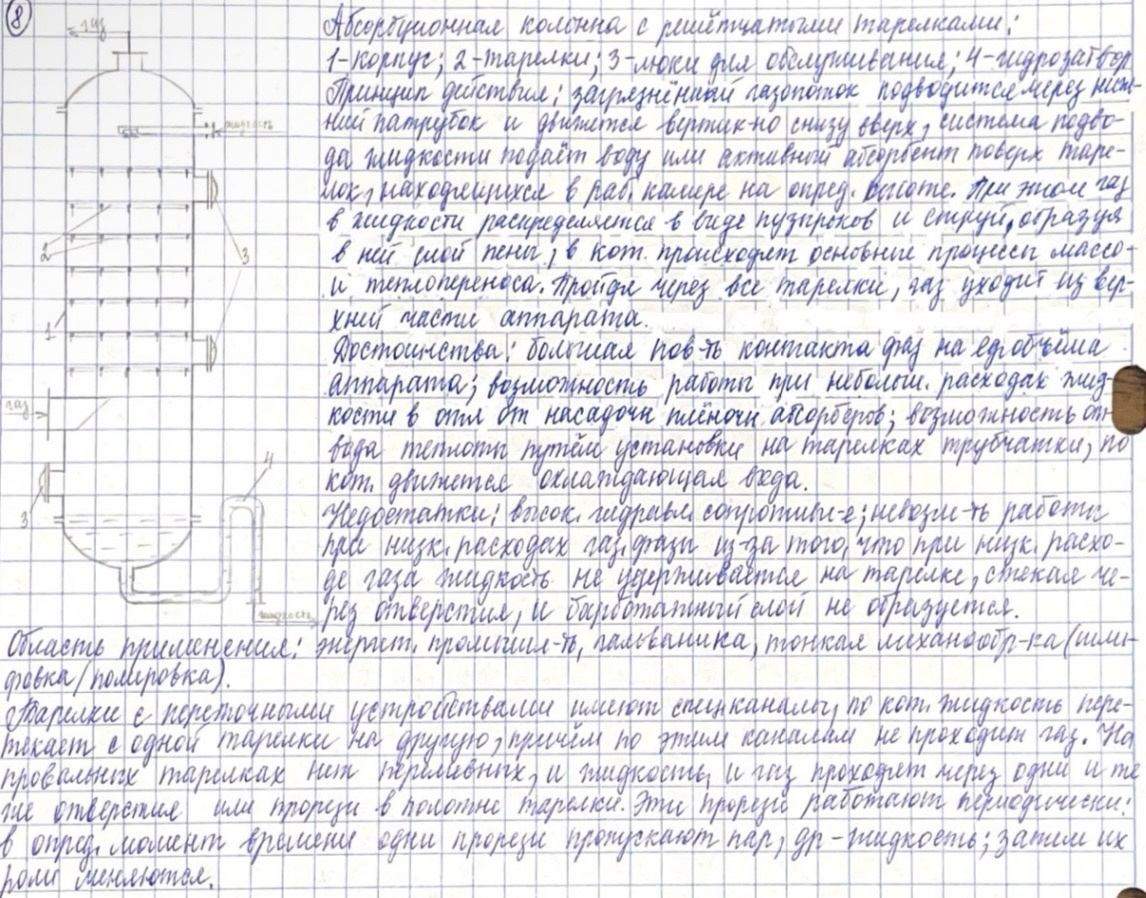 8
газ
Абсорбционная колонна с решётчатыми тарелками:
1-корпус; 2-тарелки; 3-люки для обслуживания; 4-гидрозатвор
Принцип действия: загрязнённый газопоток подводится через ниж-
ний патрубок и движется вертик-но снизу вверх, система подво-
жидкость
да жидкости подаёт воду или активный абсорбент поверх таре-
лок, находящихся в раб. камере на опред. высоте. При этом газ
в жидкости распределяется в виде пузырьков и струй, образуя
2
3
в ней слой пены, в кот. происходят основные процессы массо-
и теплопереноса. Пройдя через все тарелки, газ уходит из вер-
1
хней части аппарата.
Достоинства: большая пов-ть контакта фаз на ед. объёма
аппарата; возможность работы при небольш. расходах жид-
газ
кости в отл. от насадочн. плёночн. абсорберов; возможность от-
вода теплоты путём установки на тарелках трубчатки, по
4
кот. движется охлаждающая вода.
3
Недостатки: высок. гидравл. сопротивл-е; невозм-ть работы
при низк. расходах газ. фазы из-за того, что при низк. расхо-
де газа жидкость не удерживается на тарелке, стекая че-
жидкость
рез отверстия, и барботажный слой не образуется.
Область применения: энергет. промышл-ть, гальваника, тонкая механообр-ка (шли-
фовка/полировка).
Тарелки с переточными устройствами имеют спец. каналы, по кот. жидкость пере-
текает с одной тарелки на другую, причём по этим каналам не проходит газ. На
провальных тарелках нет переливных, и жидкость, и газ проходят через одни и те
же отверстия или прорези в полотне тарелки. Эти прорези работают периодически:
в опред. момент времени одни прорези пропускают пар, др - жидкость; затем их
роли меняются.